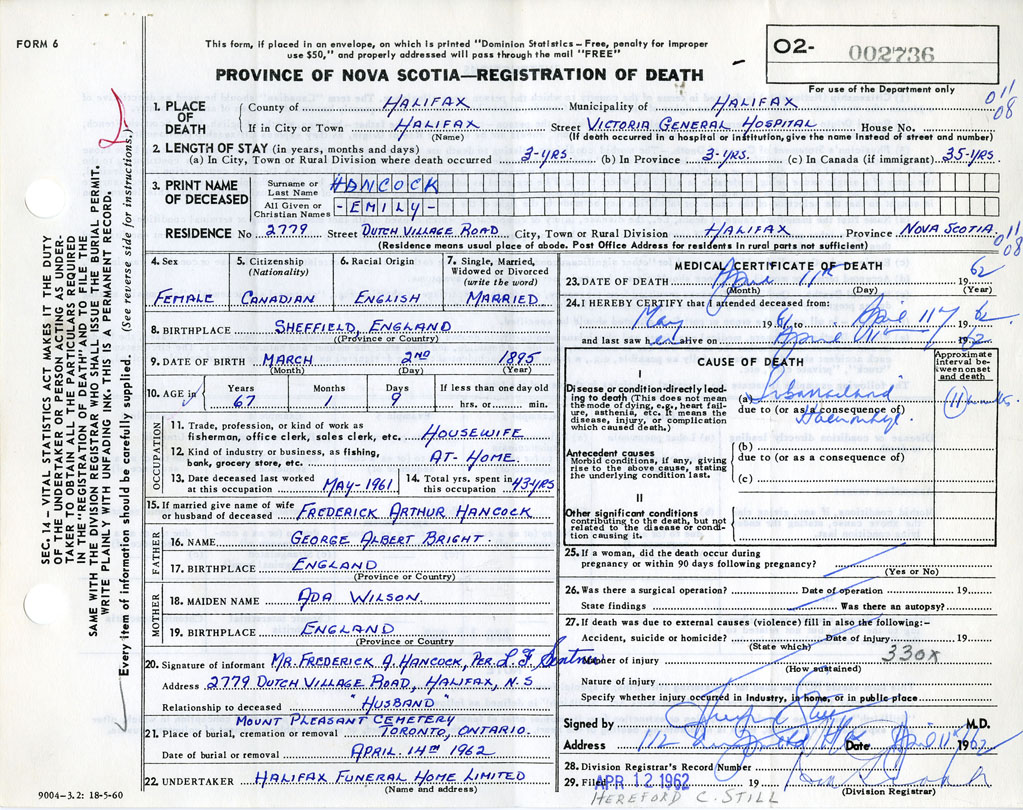 FORM 6
This form, if placed in an envelope, on which is printed "Dominion Statistics – Free, penalty for improper
use $50," and properly addressed will pass through the mail "FREE"
PROVINCE OF NOVA SCOTIA—REGISTRATION OF DEATH
O2- 002736
For use of the Department only
1. PLACE OF DEATH
County of HALIFAX Municipality of HALIFAX
If in City or Town HALIFAX Street VICTORIA GENERAL HOSPITAL House No.
(Name) (If death occurred in a hospital or institution, give the name instead of street and number)
011
08
2. LENGTH OF STAY (in years, months and days)
(a) In City, Town or Rural Division where death occurred 3-YRS. (b) In Province 3-YRS. (c) In Canada (if immigrant) 35-YRS.
3. PRINT NAME OF DECEASED
Surname or Last Name HANCOCK
All Given or Christian Names -EMILY-
RESIDENCE No 2779 Street DUTCH VILLAGE ROAD City, Town or Rural Division HALIFAX Province NOVA SCOTIA.
(Residence means usual place of abode. Post Office Address for residents in rural parts not sufficient)
011
08
4. Sex FEMALE
5. Citizenship (Nationality) CANADIAN
6. Racial Origin ENGLISH
7. Single, Married, Widowed or Divorced (write the word) MARRIED
8. BIRTHPLACE SHEFFIELD, ENGLAND
(Province or Country)
9. DATE OF BIRTH MARCH 2ND 1895
(Month) (Day) (Year)
10. AGE in
Years Months Days If less than one day old
67 1 9 hrs. or min.
OCCUPATION
11. Trade, profession, or kind of work as
fisherman, office clerk, sales clerk, etc. HOUSEWIFE
12. Kind of industry or business, as fishing,
bank, grocery store, etc. AT-HOME.
13. Date deceased last worked at this occupation MAY-1961
14. Total yrs. spent in this occupation 43-YRS
15. If married give name of wife
or husband of deceased FREDERICK ARTHUR HANCOCK
FATHER
16. NAME GEORGE ALBERT BRIGHT
17. BIRTHPLACE ENGLAND
(Province or Country)
MOTHER
18. MAIDEN NAME ADA WILSON.
19. BIRTHPLACE ENGLAND
(Province or Country
20. Signature of informant MR. FREDERICK A. HANCOCK, PER. L F
Address 2779 DUTCH VILLAGE ROAD, HALIFAX, N.S
Relationship to deceased "HUSBAND"
MOUNT PLEASANT CEMETERY
21. Place of burial, cremation or removal TORONTO, ONTARIO.
Date of burial or removal APRIL. 14TH 1962
22. UNDERTAKER HALIFAX FUNERAL HOME LIMITED
(Name and address)
9004–3.2: 18-5-60
MEDICAL CERTIFICATE OF DEATH
23. DATE OF DEATH April 11th 62
(Month) (Day) (Year)
24. I HEREBY CERTIFY that I attended deceased from:
May 1961 to April 11th 1962
and last saw her alive on April 11th 1962
CAUSE OF DEATH
Approximate interval between onset and death
I
Disease or condition directly leading to death (This does not mean the mode of dying, e.g., heart failure, asthenia, etc. It means the disease, injury, or complication which caused death.)
(a) Subarachnoid 11 months.
due to (or as a consequence of)
Haemorrhage.
Antecedent causes
Morbid conditions, if any, giving rise to the above cause, stating the underlying condition last.
(b)
due to (or as a consequence of)
(c)
II
Other significant conditions
contributing to the death, but not related to the disease or condition causing it.
25. If a woman, did the death occur during
pregnancy or within 90 days following pregnancy?
(Yes or No)
26. Was there a surgical operation? Date of operation 19
State findings Was there an autopsy?
27. If death was due to external causes (violence) fill in also the following:–
Accident, suicide or homicide? Date of injury 19
(State which)
330X
Manner of injury
(How sustained)
Nature of injury
Specify whether injury occurred in industry, in home, or in public place
Signed by M.D.
Address 112 Hfx Date April 11th 1962
28. Division Registrar's Record Number
29. Filed APR 12 1962 19
(Division Registrar)
HEREFORD C. STILL
SEC. 14 – VITAL STATISTICS ACT MAKES IT THE DUTY
OF THE UNDERTAKER OR PERSON ACTING AS UNDER-
TAKER TO OBTAIN ALL THE PARTICULARS REQUIRED
IN THE "REGISTRATION OF DEATH" AND TO FILE THE
SAME WITH THE DIVISION REGISTRAR WHO SHALL ISSUE THE BURIAL PERMIT.
WRITE PLAINLY WITH UNFADING INK. THIS IS A PERMANENT RECORD.
Every item of information should be carefully supplied. (See reverse side for instructions.)